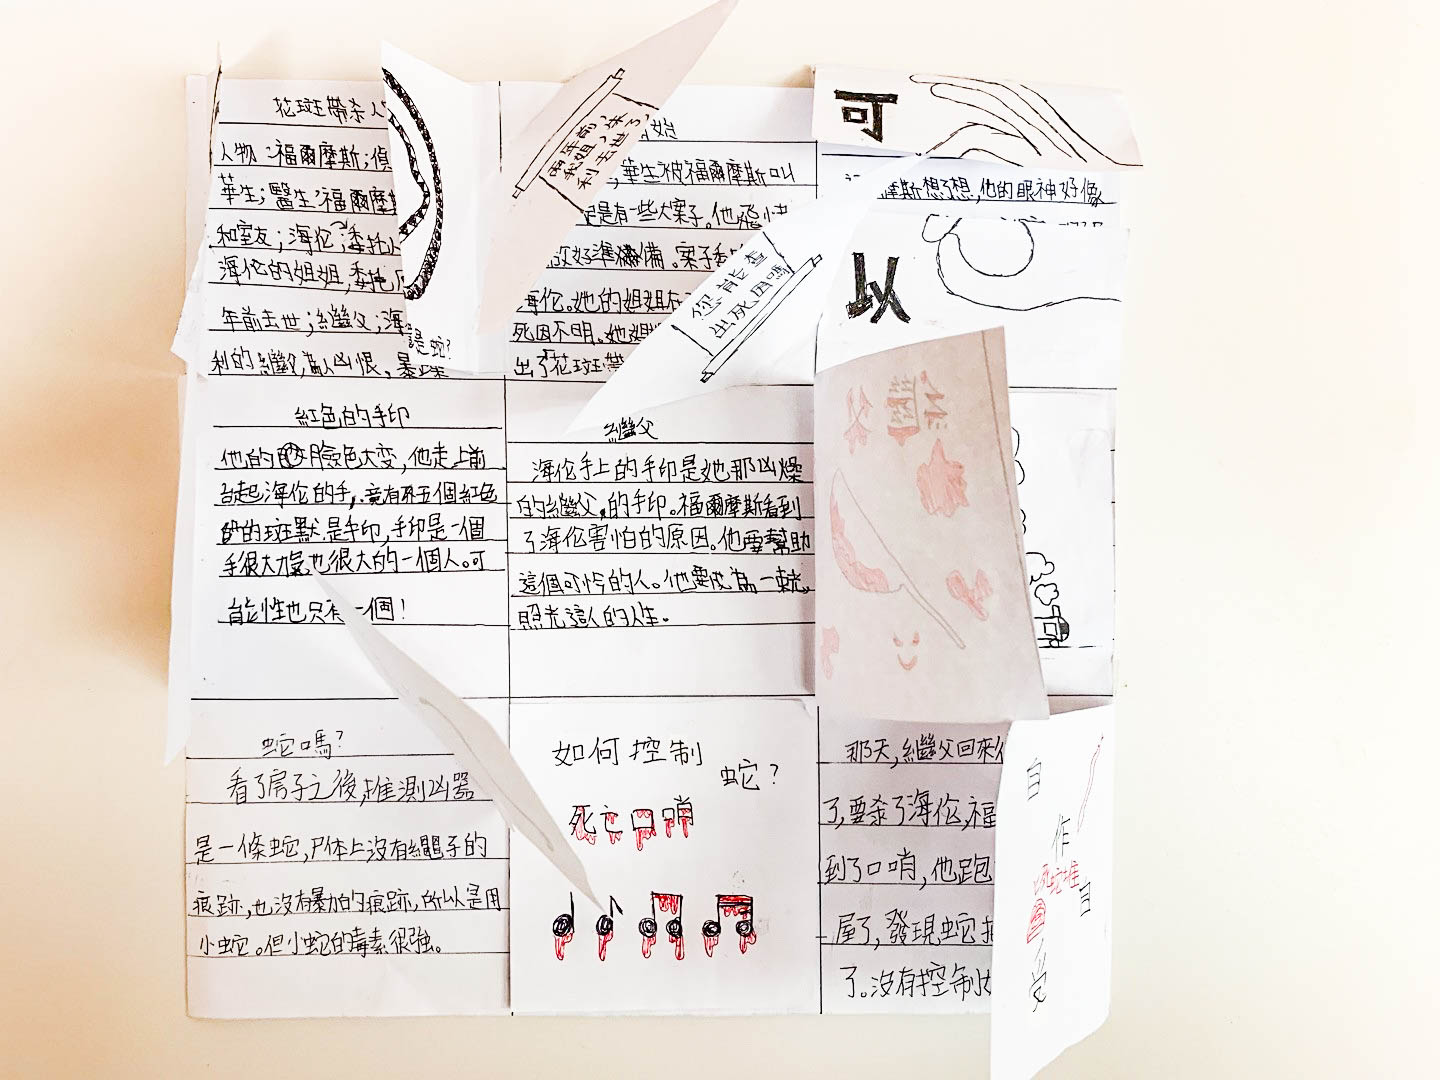 花斑帶杀人
人物：福爾摩斯；偵
華生；醫生，福爾摩
和室友；海伦：委托人
海伦的姐姐，委托
年前去世；繼父；海
利的繼父，為人凶恨，暴躁
是蛇？
兩年前，
我姐
利去世了
始
，華生被福爾摩斯叫
定是有一些大案子。他飛快
做好準備。案子委
海伦。她的姐姐在
死因不明。她姐
出了花斑帶
您能查
出死因嗎
可
摩斯想了想，他的眼神好像
以
紅色的手印
他的臉色大变，他走上前
台起海伦的手，竟有五個紅色
的斑默是手印，手印是一個
手很大力氣也很大的一個人。可
能性也只有一個！
繼父
海伦手上的手印是她那凶燥
的繼父的手印。福爾摩斯看到
了海伦害怕的原因。他要幫助
這個可怜的人。他要成為一束光，
照亮這人的人生。
繼
父
蛇嗎？
看了房子之後，推測凶器
是一條蛇，尸体上沒有繩子的
痕跡，也沒有暴力的痕跡，所以是用
小蛇。但小蛇的毒素很強。
如何控制
蛇？
死亡口哨
那天，繼父回來
了，要杀了海伦，福
到了口哨，他跑
屋了，發現蛇
了。沒有控制
自
作
自
受